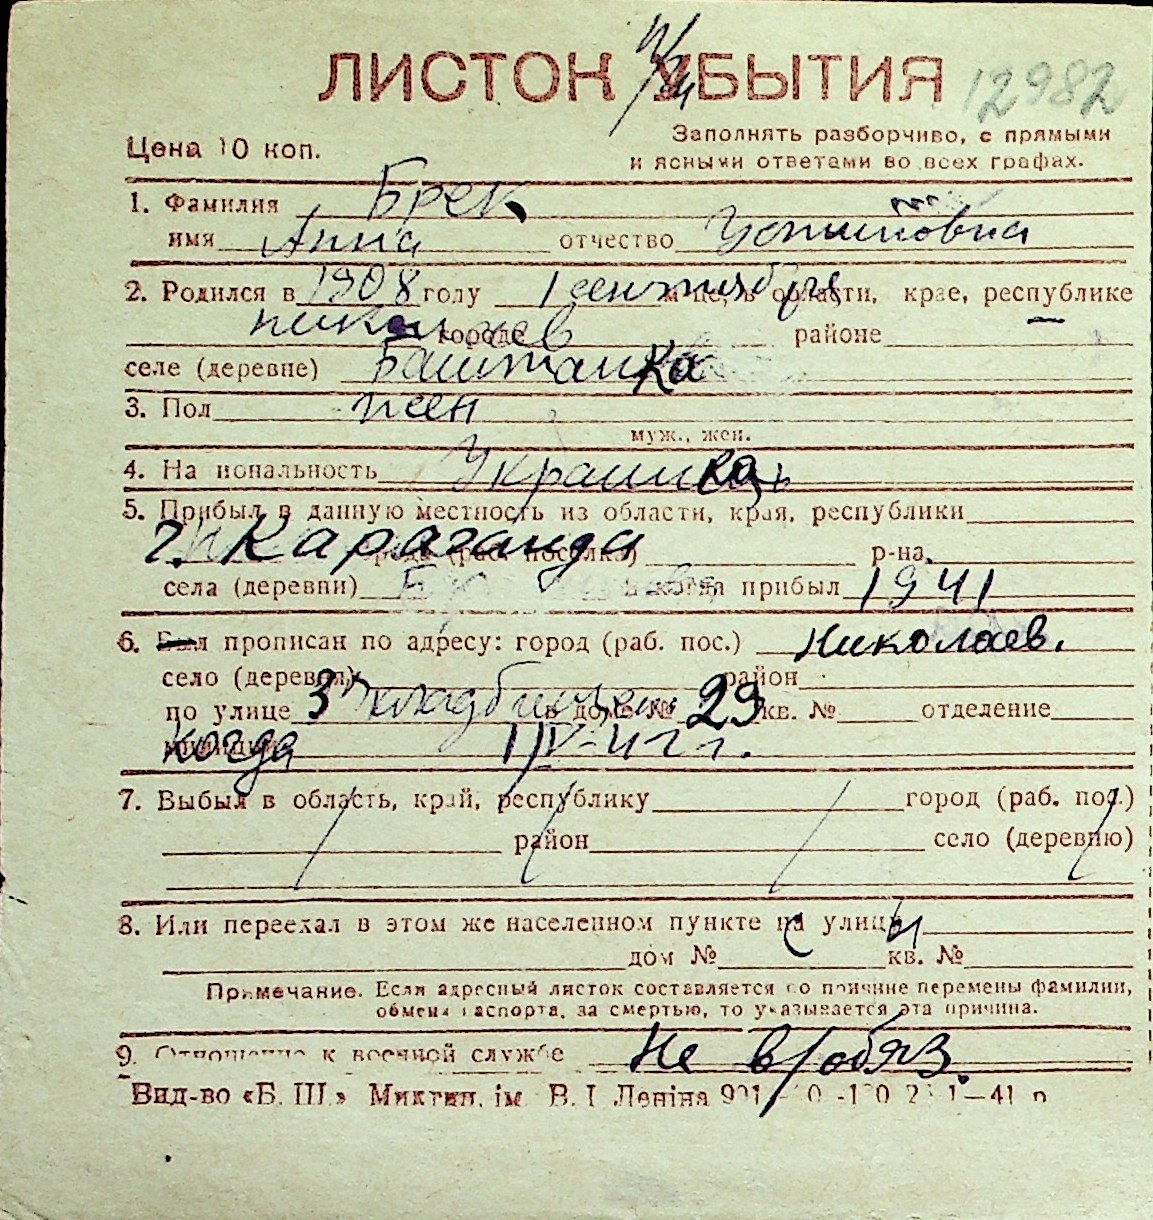 ЛИСТОК УБЫТИЯ 12982
Цена 10 коп.
Заполнять разборчиво, с прямыми
и ясными ответами во всех графах.
1. Фамилия Брек
имя Анна отчество
2. Родился в 1908 году 1 сентября м-це, в области, крае, республике
николаев городе районе
селе (деревне) Баштанка
3. Пол жен
муж., жен.
4. Национальность Украинка
5. Прибыл в данную местность из области, края, республики
г. Караганда р-на
села (деревни) и когда прибыл 1941
6. Был прописан по адресу: город (раб. пос.) Николаев.
село (деревня) район
по улице 3 кладбищен в доме № 29 кв. № отделение
когда 1/IV-42 г.
7. Выбыл в область, край, республику город (раб. пос.)
район село (деревню)
8. Или переехал в этом же населенном пункте с улицы
дом № кв. №
Примечание. Если адресный листок составляется по причине перемены фамилии,
обмена паспорта, за смертью, то указывается эта причина.
9. Отношение к военной службе Не в/обяз.
Вид-во «Б. Ш.» Микгин. ім. В. І. Леніна